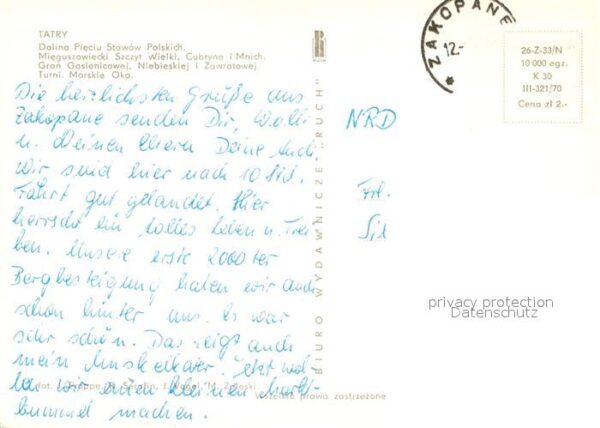 TATRY
Dolina Pięciu Stawów Polskich.
Mięguszowiecki Szczyt Wielki, Cubryna i Mnich.
Grań Gąsienicowej, Niebieskiej i Zawratowej
Turni. Morskie Oko.
ZAKOPANE
12.-
26-Z-33/N
10 000 egz.
K 30
III-321/70
Cena zł 2.-
Die herzlichsten Grüße aus
Zakopane senden Dir,
u. Deinen Eltern Deine
Wir sind hier nach 10 Std.
Fahrt gut gelandet. Hier
herrscht ein tolles Leben u. Trei
ben. Unsere erste 2000ter
Bergbesteigung haben wir auch
schon hinter uns. Es war
sehr schön. Das zeigt auch
mein Muskelkater. Jetzt wol
len wir einen kleinen Markt-
bummel machen.
NRD
Frl.
BIURO WYDAWNICZE "RUCH"
privacy protection
Datenschutz
Wszelkie prawa zastrzeżone